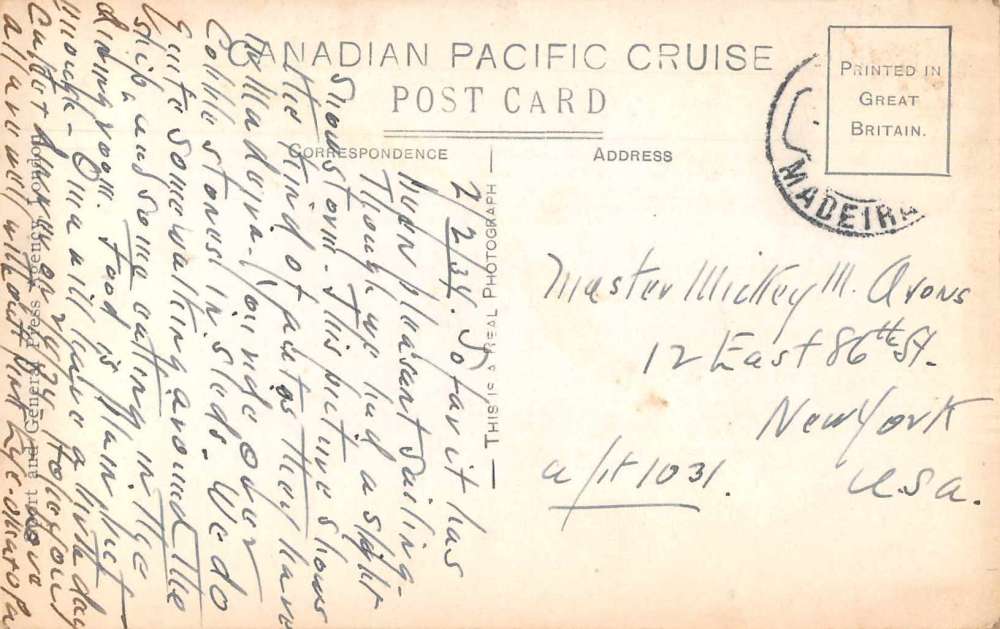 CANADIAN PACIFIC CRUISE
POST CARD
PRINTED IN
GREAT
BRITAIN.
MADEIRA
CORRESPONDENCE
ADDRESS
2/2/34. So far it has
been pleasant sailing-
Though we had a slight
snowstorm. This picture shows
the kind of they have
in Madeira. You ride over
cobble stones in sleds. We do
quite some walking around the
ship and some eating in the
dining room. Food is plain but
enough- Oma will have a birthday
on
all are well without
THIS IS A REAL PHOTOGRAPH
Sport and General Press Agency, London
Master Mickey M. Arons
12 East 86th St.
New York
USA.
a/pt 1031.